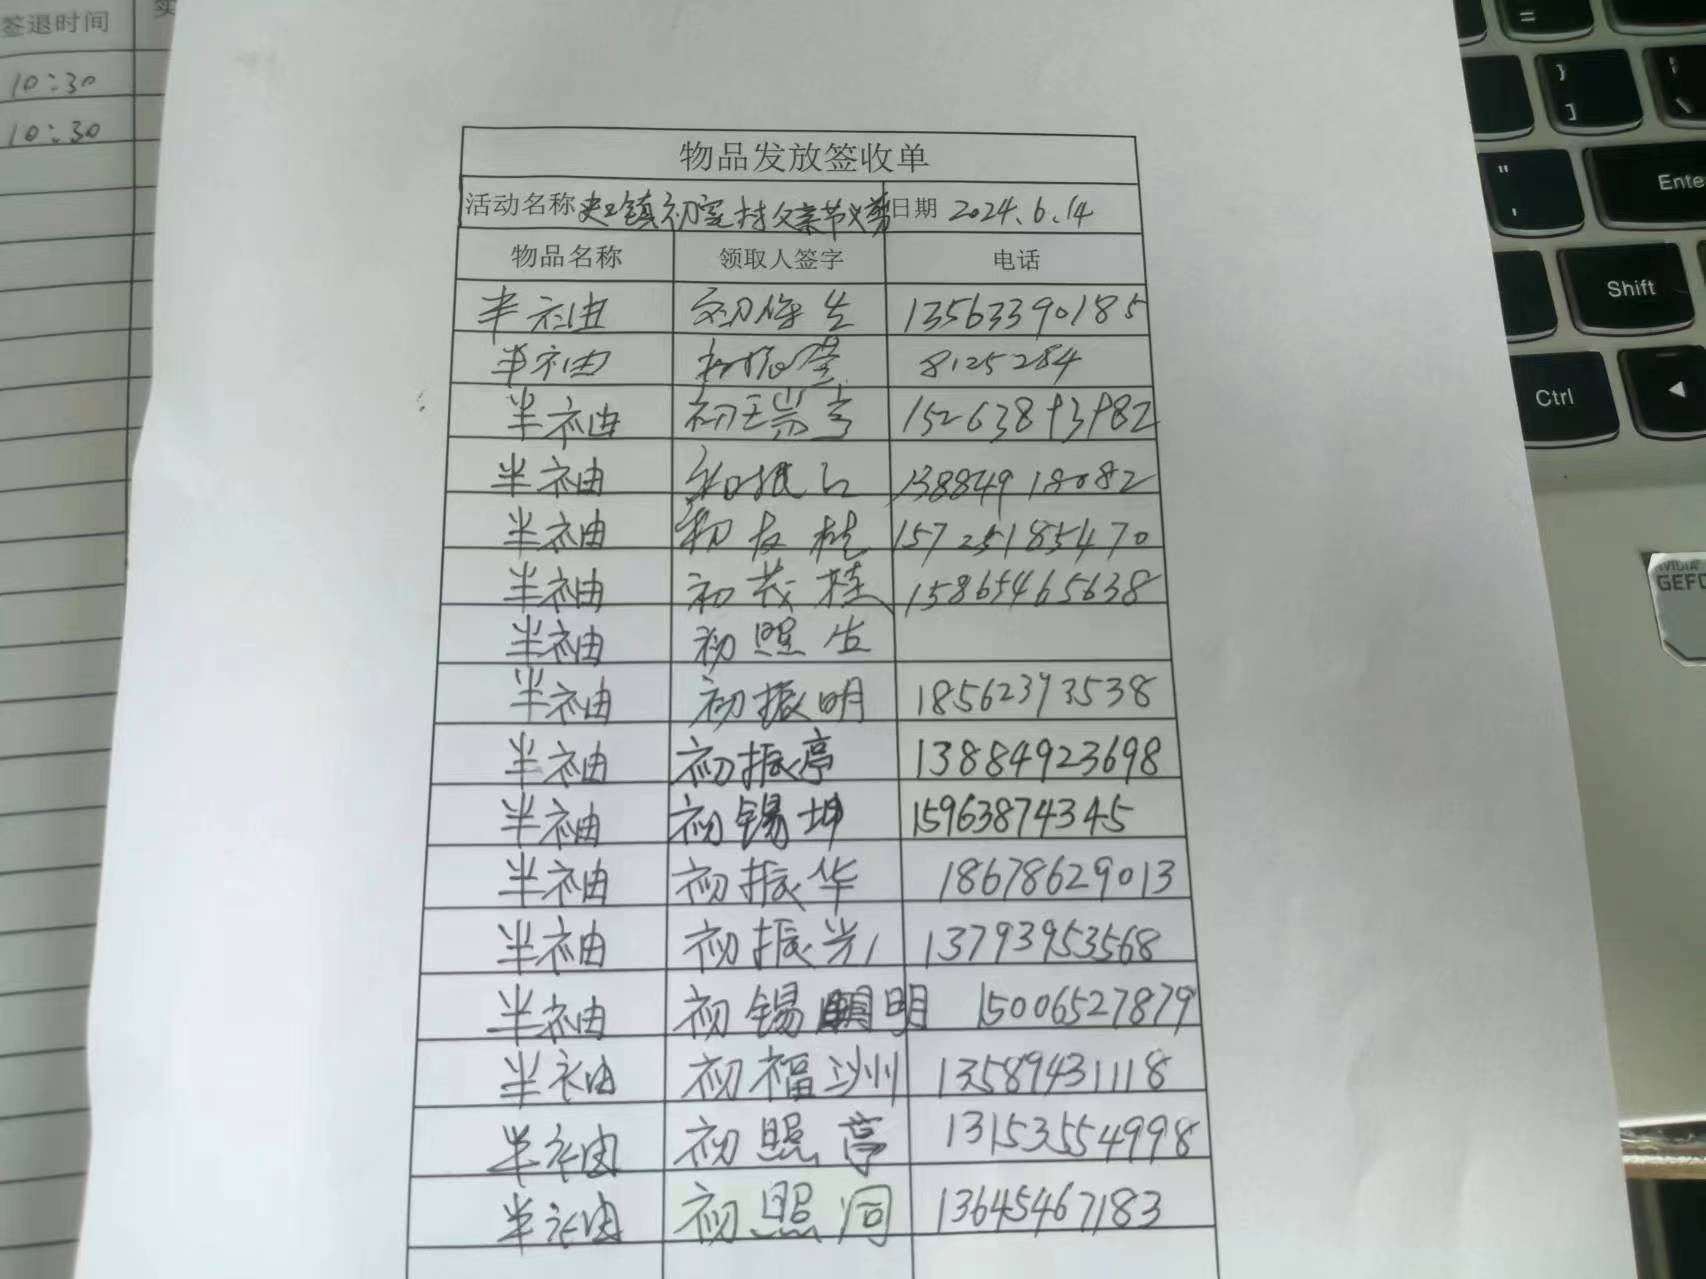 签退时间
10:30
10:30
物品发放签收单
活动名称 镇初家村父亲节义剪 日期 2024.6.14
物品名称 领取人签字 电话
半袖 生 13563390185
半袖 初振 8125284
半袖 初 15263893982
半袖 初振 13884918082
半袖 初友桂 15725185470
半袖 初茂桂 15865465638
半袖 初照生
半袖 初振明 18562393538
半袖 初振亭 13884923698
半袖 初锡坤 15963874345
半袖 初振华 18678629013
半袖 初振光 13793953568
半袖 初锡明 15006527879
半袖 初福洲 13589431118
半袖 初照亭 13153554998
半袖 初照同 13645467183
=
}
]
"
'
Enter
Shift
Ctrl
NVIDIA
GEFO